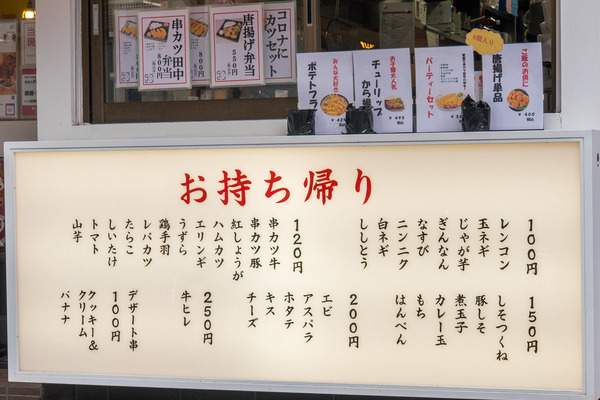 串カツ田中
弁当
800円
唐揚げ弁当
550円
コロナに
カツセット
みんな大好き
ポテトフラ
お子様大人気
チューリップ
から揚
¥495
パーティーセット
4個入り
ご飯のお供に
唐揚げ単品
¥400
お持ち帰り
100円
レンコン
玉ネギ
じゃが芋
ぎんなん
なすび
ニンニク
白ネギ
ししとう
120円
串カツ牛
串カツ豚
紅しょうが
ハムカツ
エリンギ
うずら
鶏手羽
レバカツ
たらこ
しいたけ
トマト
山芋
150円
しそつくね
豚しそ
煮玉子
カレー玉
もち
はんぺん
200円
エビ
アスパラ
ホタテ
キス
チーズ
250円
牛ヒレ
デザート串
100円
クッキー&
クリーム
バナナ